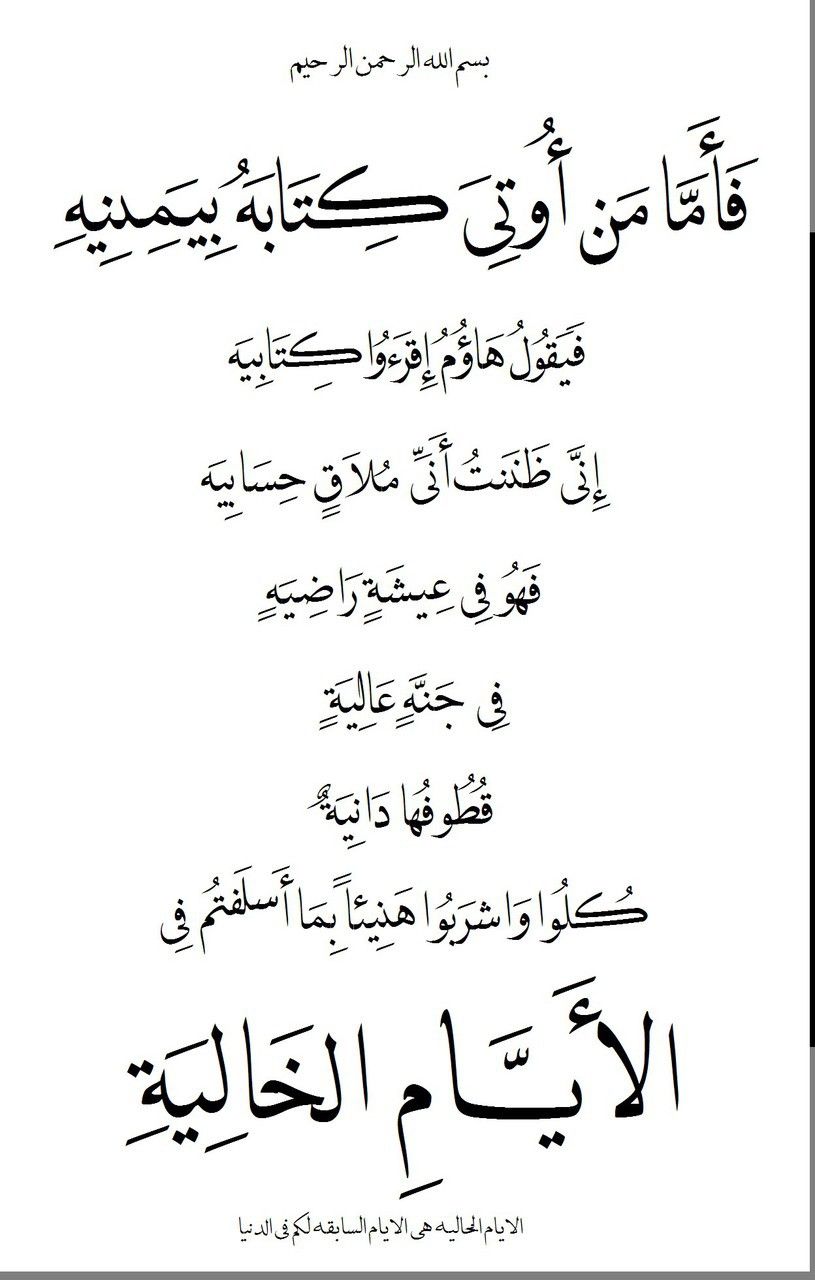 بسم الله الرحمن الرحيم
فَأَمَّا مَن أُوتِيَ كِتَابَهُ بِيَمِينِهِ
فَيَقُولُ هَاؤُمُ إِقرَءُوا كِتَابِيَه
إِنَّى ظَنَنتُ أَنَّى مُلاَقٍ حِسَابِيَه
فَهُو فِى عِيشَةٍ رَاضِيَهٍ
فِى جَنَّهٍ عَالِيَةٍ
قُطُوفُها دَانِيَةٌ
كُلُوا وَاشرَبُوا هَنِيئاً بِمَا أَسلَفتُم فِى
الأَيَّامِ الخَالِيَةِ
الايام الخاليه هى الايام السابقه لكم فى الدنيا